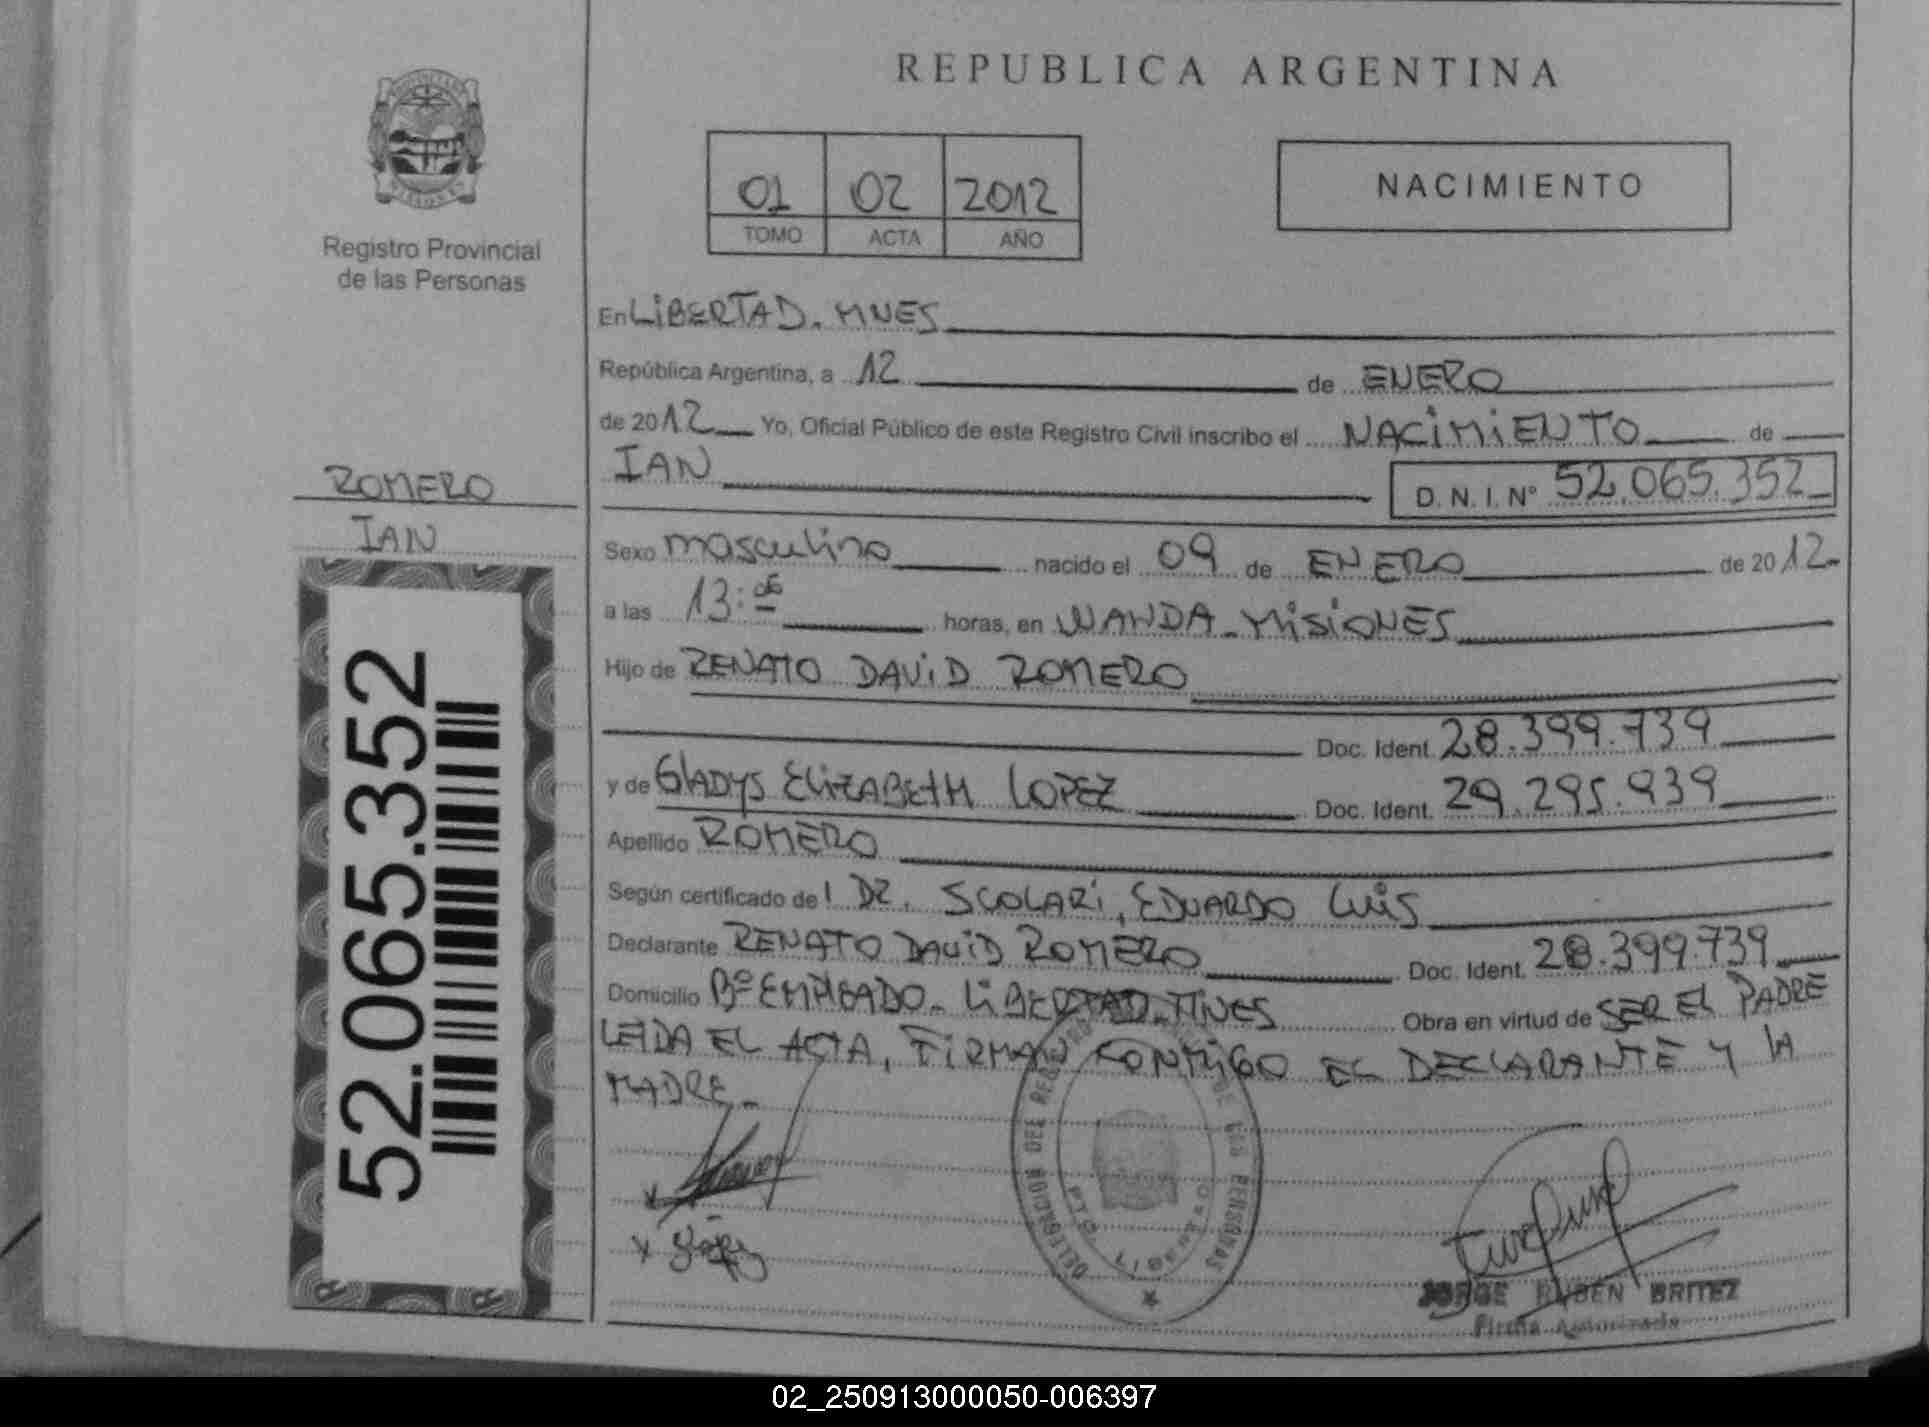 REPUBLICA ARGENTINA
01 02 2012
TOMO ACTA AÑO
NACIMIENTO
Registro Provincial
de las Personas
ROMERO
IAN
52.065.352
En LiBERTAD. MNES
República Argentina, a 12 de ENERO
de 2012 Yo, Oficial Público de este Registro Civil inscribo el NACiMiENTO de
IAN D. N. I. N° 52.065.352
Sexo masculino nacido el 09 de ENERO de 2012
a las 13: horas, en WANDA - MiSiONES
Hijo de RENATO DAViD ROMERO
Doc. Ident. 28.399.739
y de GlADYS EliZABETH LOPEZ Doc. Ident. 29.295.939
Apellido ROMERO
Según certificado de l DR. SCOLARi, EDUARDO LUiS
Declarante RENATO DAViD ROMERO Doc. Ident. 28.399.739
Domicilio Bº EMPLEADO - LiBERTAD - MNES Obra en virtud de SER EL PADRE
LEIDA EL ACTA, FiRMAN CONMiGO EL DECLARANTE Y LA
MADRE -
DELEGACION DEL REGISTRO DE LAS PERSONAS
PTO. LIBERTAD
JORGE RUBEN BRITEZ
Firma Autorizada
02_250913000050-006397